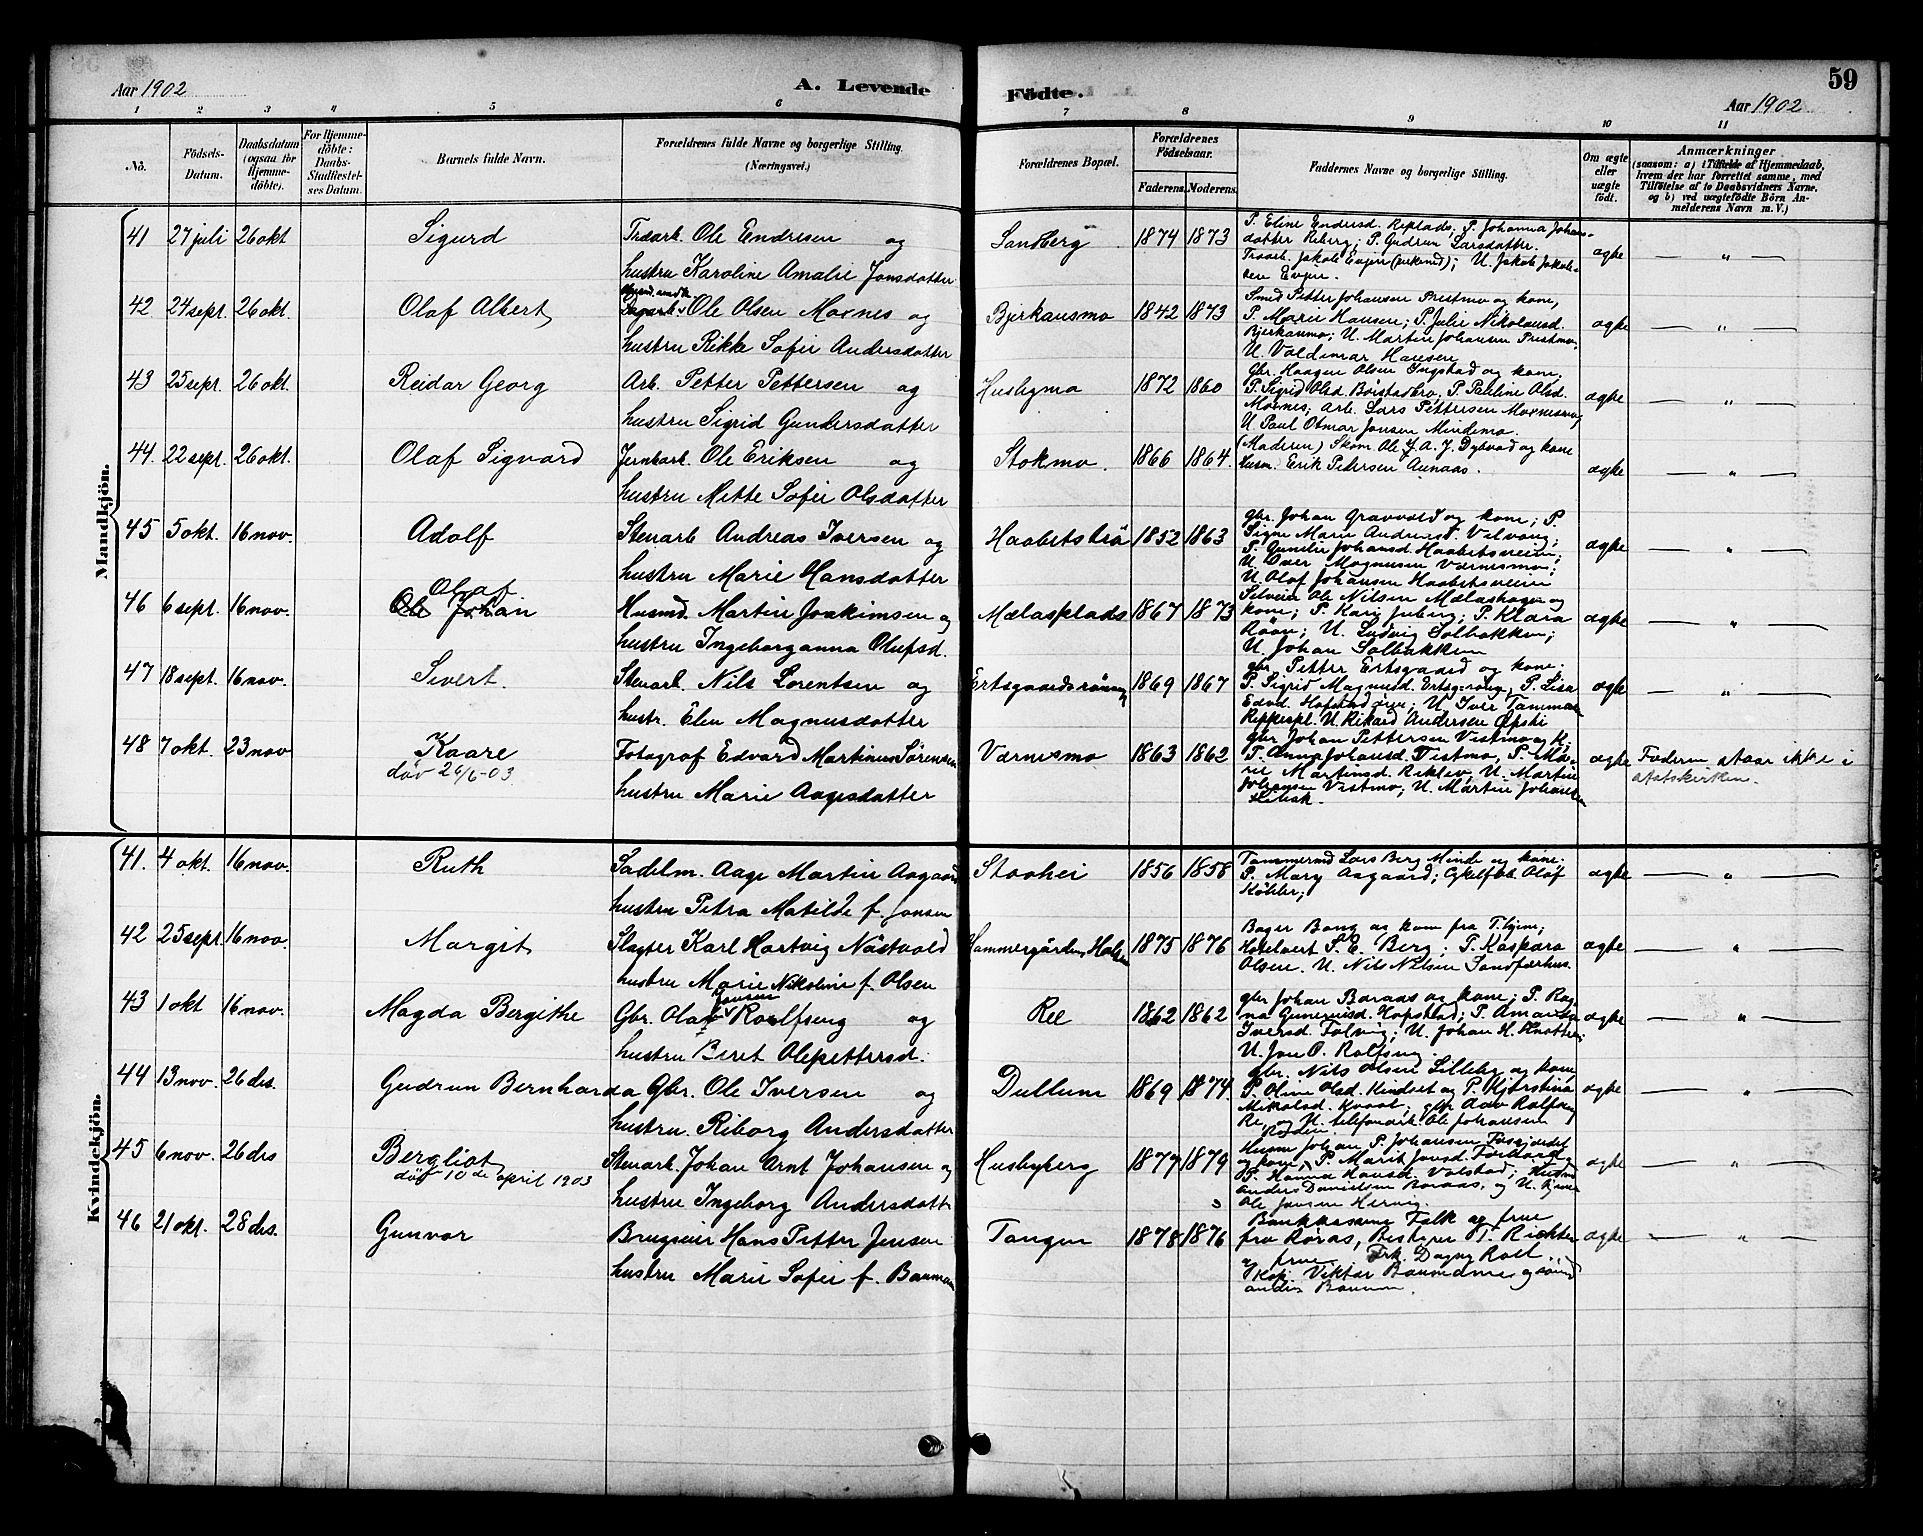 Aar 1902
A. Levende
Födte.
59
Aar 1902
1 2 3 4 5 6 7 8 9 10 11
No.
Födsels-Datum.
Daabsdatum (ogsaa for Hjemme-döbte).
For Hjemme-döbte: Daabs-Stadfæstel-ses Datum.
Barnets fulde Navn.
Forældrenes fulde Navne og borgerlige Stilling. (Næringsvei.)
Forældrenes Bopæl.
Forældrenes Födselsaar.
Faderens. Moderens.
Faddernes Navne og borgerlige Stilling.
Om ægte eller uægte födt.
Anmærkninger
(saasom: a) i Tilfælde af Hjemmedaab, hvem der har forrettet samme, med Tilföielse af to Daabsvidners Navne. og b) ved uægtefödte Börn An-melderens Navn m. V.)
Mandkjön.
41 27 juli 26 okt Sigurd Træarb. Ole Endresen og Sandberg 1874 1873 ægte — " —
hustru Karoline Amalie Jonsdatter
P. Eline Endresd. Replads, P. Johanna Johans-
datter Reberg; P. Gudrun Larsdatter.
Træarb. Jakob Evjen; U. Jakob Jakob-
sen Evjen.
42 24 sept. 26 okt. Olaf Albert Ole Olsen Moxnes og Bjerkansmo 1842 1873 ægte — " —
hustru Rikke Sofie Andersdatter
Smed Petter Johansen Prestmo og kone,
P. Marie Hansen; P. Julie Nikolaisd.
Bjerkanmo; U. Martin Johansen Prestmo,
U. Valdemar Hansen
43 25 sept. 26 okt. Reidar Georg Arb. Petter Pettersen og Husbymo 1872 1860 ægte — " —
hustru Sigrid Gundersdatter
Gbr. Haagen Olsen Ingstad og kone.
P. Sigrid Olsd. P. Pauline Olsd.
Moxnes; Arb. Lars Pettersen
U. Paul Otmar Jensen Mindemo.
44. 22 sept. 26 okt. Olaf Sigvard Jernbarb. Ole Eriksen og Stokmo. 1866 1864. ægte — " —
hustru Mette Sofie Olsdatter
(Moderen) Skom. Ole J. A. J. Dybvad og kone
Husm. Erik Petersen Aunaas.
45 5 okt. 16 nov. Adolf Stenarb. Andreas Iversen og Haabetstrø 1852 1863 ægte — " —
hustru Marie Hansdatter
gbr. Johan Gravvold og kone; P.
Signe Marie Andreasd. Velvang;
P. Gunelie Johansd. Haabetsveien;
U. Over Magnusen Værnesmo;
U. Olaf Johansen Haabetsveien
46 6 sept. 16 nov. Olaf
Ole Johan Husmd. Martin Joakimsen og Mælasplads 1867 1873 ægte — " —
hustru Ingeborganna Olufsd.
Selveier Ole Nilsen Mælashagen og
kone; P. Kari Juberg; P. Klara
Røøn; U. Ludvig Solbakken;
U. Johan Solbakken
47 18 sept. 16 nov. Sivert. Stenarb. Nils Lorentsen og Ertsgaardsrønning 1869 1867 ægte — " —
hustr. Elen Magnusdatter
gbr. Petter Ertsgaard og kone;
P. Sigrid Magnusd. P. Lisa
U. Iver Tammaa
U. Rikard Andersen Øfsti
48 7 okt. 23 nov Kaare Fotograf Edvard Martinus Sørensen Værnesmo 1863 1862 ægte Faderen staar ikke i
død 26/6-03 statskirken.
hustru Marie Aagesdatter
gbr. Johan Pettersen Vestmo og k.
P. Anna Johansd. Vestmo, P. Ma-
rie Martinsd. U. Martin
Johansen Vestmo; U. Martin Johansen
Kvindekjön.
41. 4 okt. 16 nov. Ruth Sadelm. Aage Martin Aagaard Staahei 1856 1858 ægte — " —
hustru Petra Matilde f. Jonsen
Tømmermd Lars Berg Minde og kone.
P. Mary Aagaard; Cykelfbk Olaf
Köhler;
42 25 sept. 16 nov. Margit Slagter Karl Hartvig Næstvold Hammergården Halsen 1875 1876 ægte — " —
hustru Marie Nikoline f. Olsen
Bager Bang og kone fra T.hjem;
Hotelvert P. E. Berg; P. Kaspara
Olsen. U. Nils Nilsen Sandfærhus.
43 1 okt 16 nov. Magda Bergithe Gbr. Olaf Jonsen Roelfseng og Ree 1862 1862 ægte — " —
hustru Beret Olepettersd.
gbr Johan Baraas og kone; P. Rag-
na Gunerusd. Hopstad; P. Amanda
Iversd. U. Johan H.
U. Jon O. Rolfseng.
44 13 nov. 26 des. Gudrun Bernharda Gbr. Ole Iversen og Dullum 1869 1874 ægte — " —
hustru Riborg Andersdatter
gbr. Nils Olsen Lilleby og kone
P. Oline Olsd. Kindset og P. Kjerstina
Mikalsd. Kvaal; Rolfseng
Re, og U. telefonarb. Ole Johansen
45 6 nov. 26 des Bergliot Stenarb. Johan Arnt Johansen og Husbyberg 1877 1879 ægte — " —
død 10 de april 1903
hustru Ingeborg Andersdatt
Johan P. Johansen
og kone, P. Marit Jonsd.
P. Hanna Hansd. Valstad;
Anders Danielsen Baraas, og U.
Ole Jonsen
46 21 okt. 28 des. Gunvor Brugseier Hans Petter Jensen Tangen 1878 1876 ægte — " —
hustru Marie Sofie f. Bauman
Bankkasserer Falk og frue
fra Røros, Bestyrer T. Richter
og frue, Frk. Dagny Roll.
Kop. Viktor